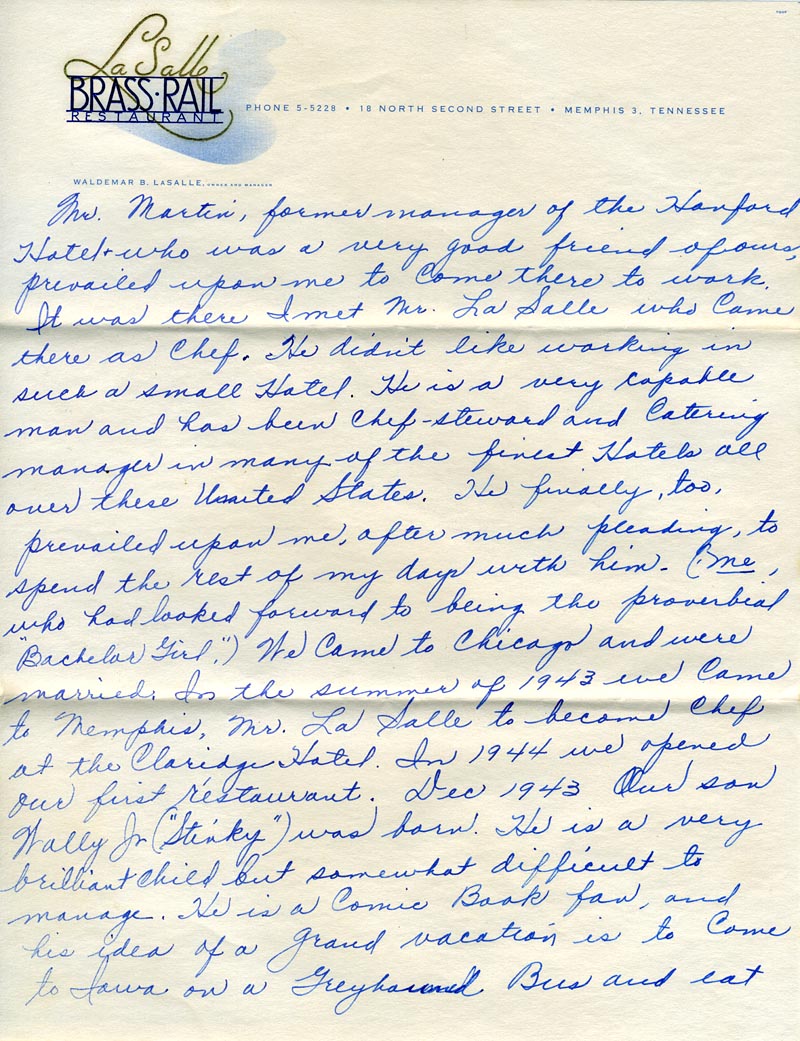 La Salle
BRASS·RAIL
RESTAURANT
PHONE 5-5228 • 18 NORTH SECOND STREET • MEMPHIS 3, TENNESSEE
WALDEMAR B. LASALLE, OWNER AND MANAGER
Mr. Martin, former manager of the Hanford
Hotel + who was a very good friend of ours,
prevailed upon me to come there to work.
It was there I met Mr. La Salle who came
there as Chef. He didn't like working in
such a small Hotel. He is a very capable
man and has been Chef-steward and Catering
manager in many of the finest Hotels all
over these United States. He finally, too,
prevailed upon me, after much pleading, to
spend the rest of my days with him. (Me,
who had looked forward to being the proverbial
"Bachelor Girl.") We came to Chicago and were
married. In the summer of 1943 we came
to Memphis, Mr. La Salle to become Chef
at the Claridge Hotel. In 1944 we opened
our first restaurant. Dec 1943 Our son
Wally Jr ("Stinky") was born. He is a very
brilliant child but somewhat difficult to
manage. He is a Comic Book fan, and
his idea of a grand vacation is to come
to Iowa on a Greyhound Bus and eat